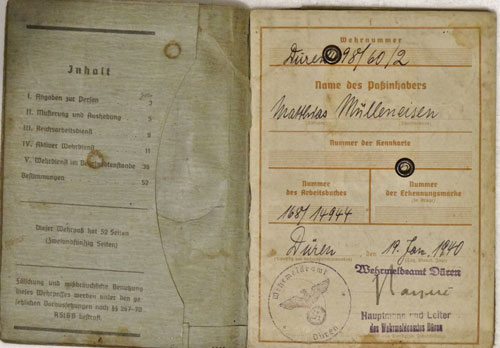 Inhalt
Seite
I. Angaben zur Person 3
II. Musterung und Aushebung 5
III. Reichsarbeitsdienst 9
IV. Aktiver Wehrdienst 11
V. Wehrdienst im Beurlaubtenstande 36
Bestimmungen 52
Dieser Wehrpaß hat 52 Seiten
(Zweiundfünfzig Seiten)
Fälschung und mißbräuchliche Benutzung
dieses Wehrpasses werden unter den ge-
setzlichen Voraussetzungen nach §§ 267-70
RStGB bestraft.
Wehrnummer
Düren 98/60/2
Name des Paßinhabers
Matthias Mülleneisen
(Rufname)
Nummer der Kennkarte
Nummer
des Arbeitsbuches
168/14944
Nummer
der Erkennungsmarke
(im Kriege)
Düren den 19. Jan. 1940
Wehrmeldeamt Düren
Hauptmann und Leiter
des Wehrmeldeamtes Düren
Wehrmeldeamt
Düren